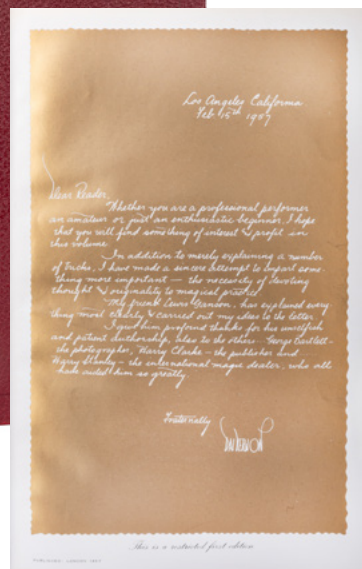 Los Angeles California
Feb 15th 1957
Dear Reader,
Whether you are a professional performer
an amateur or just an enthusiastic beginner, I hope
that you will find something of interest & profit in
this volume.
In addition to merely explaining a number
of tricks, I have made a sincere attempt to impart some
thing more important — the necessity of devoting
thought & originality to magical
My friend Lewis Ganson, has explained every
thing most clearly & carried out my ideas to the letter
I give him profound thanks for his unselfish
and patient authorship, also to the others — George Bartlett —
the photographer, Harry Clarke — the publisher and
Harry Stanley — the international magic dealer, who all
have aided him so greatly.
Fraternally
Dai Vernon
This is a restricted first edition